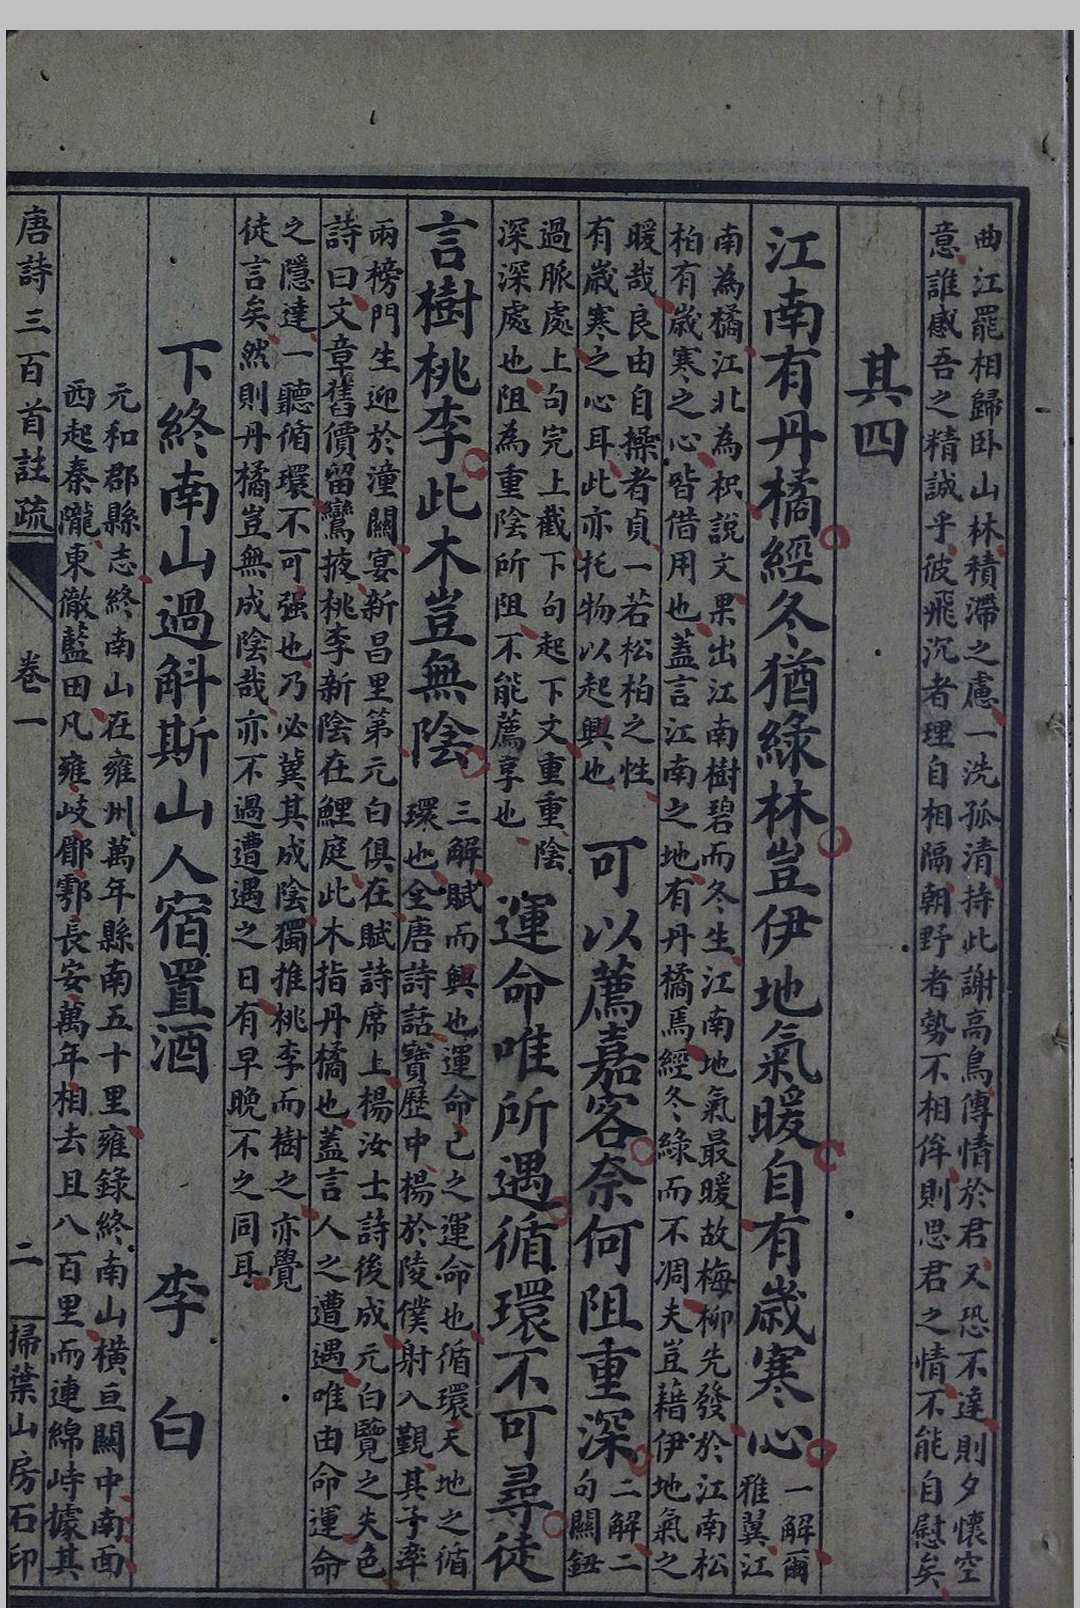 曲江罷相歸卧山林積滯之慮一洗孤清持此謝高鳥傳情於君又恐不達則夕懷空
意誰感吾之精誠乎彼飛沉者理自相隔朝野者勢不相侔則思君之情不能自慰矣
其四
江南有丹橘經冬猶綠林豈伊地氣暖自有歲寒心
一解爾
雅翼江
南為橘江北為枳說文果出江南樹碧而冬生江南地氣最暖故梅柳先發於江南松
柏有歲寒之心皆借用也蓋言江南之地有丹橘焉經冬綠而不凋夫豈藉伊地氣之
暖哉良由自操者貞一若松柏之性
有歲寒之心耳此亦托物以起興也
可以薦嘉客奈何阻重深
二解二
句關鈕
過脈處上句完上截下句起下文重重陰
深深處也阻為重陰所阻不能薦享也
運命唯所遇循環不可尋徒
言樹桃李此木豈無陰
三解賦而興也運命己之運命也循環天地之循
環也全唐詩話寶歷中楊於陵僕射入覲其子率
兩榜門生迎於潼關宴新昌里第元白俱在賦詩席上楊汝士詩後成元白覽之失色
詩曰文章舊價留鸞掖桃李新陰在鯉庭此木指丹橘也蓋言人之遭遇唯由命運命
之隱達一聽循環不可强也乃必冀其成陰獨推桃李而樹之亦覺
徒言矣然則丹橘豈無成陰哉亦不過遭遇之日有早晚不之同耳
下終南山過斛斯山人宿置酒 李白
元和郡縣志終南山在雍州萬年縣南五十里雍錄終南山橫亘關中南面
西起秦隴東徹藍田凡雍岐郿鄠長安萬年相去且八百里而連綿峙據其
唐詩三百首註疏 卷一 二 掃葉山房石印